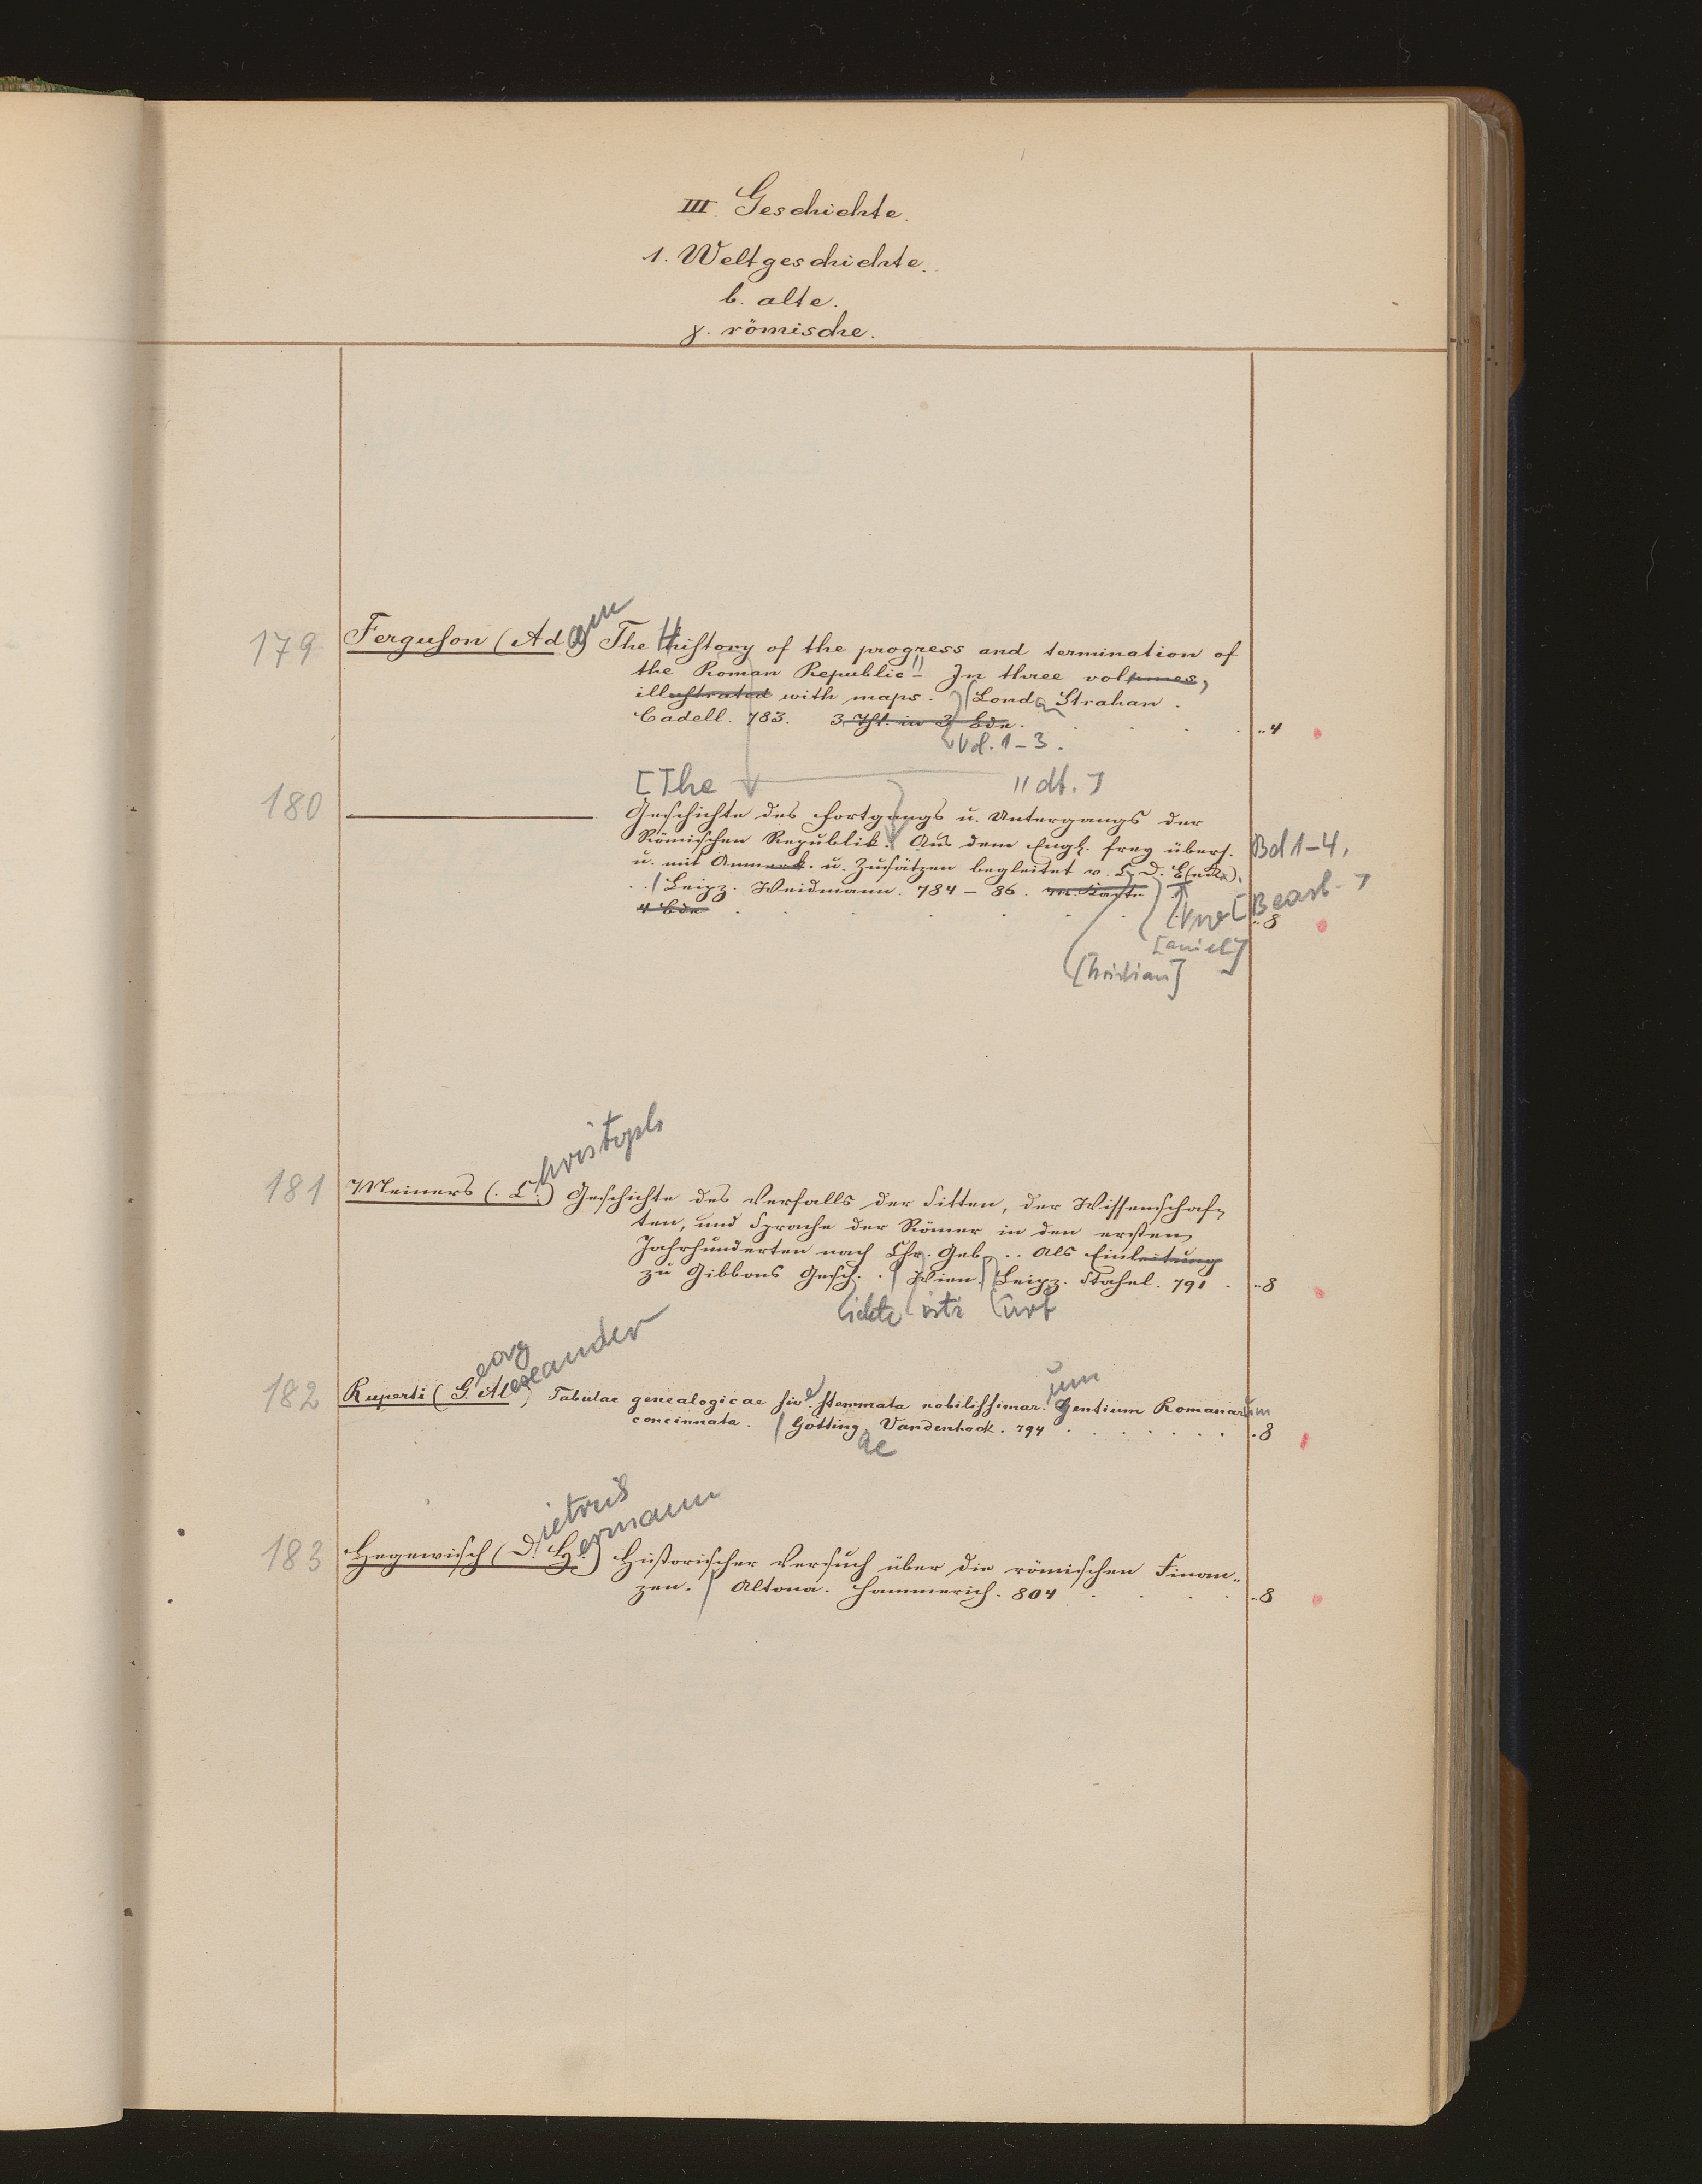 III. Geschichte.
1. Weltgeschichte.
b. alte.
γ. römische.
179 Ferguson (Adam) The History of the progress and termination of
the Roman Republic. In three volumes,
illustrated with maps. Londn Strahan.
Cadell. 783. 3 Thl. in 3 Bdn. ..4
Vol. 1-3.
[The " dt. ]
180 Geschichte des Fortgangs u. Untergangs der
Römischen Republik. Aus dem Engl. frey übers. Bd 1-4.
u. mit Anmerk. u. Zusätzen begleitet v. C. D. B(eck).
.. / Leipz. Weidmann. 784-86. m. Kart. [Bearb. ]
4 Bde ..8
[aniel]
[hristian]
181 Meiners (. C.) Geschichte des Verfalls der Sitten, der Wissenschaf-
hristoph
ten, und Sprache der Römer in den ersten
Jahrhunderten nach Chr. Geb. .. Als Einleitung
zu Gibbons Gesch. . / Wien. Leipz. Stahel. 791 . ..8
ichte
eorg
182 Ruperti (G. Alexander) Tabulae genealogicae sive stemmata nobilissimar. gentium Romanarum
um
concinnata. / Götting. Vandenhoek. 794 . .8
ae
ietrich
ermann
183 Hegewisch (D. H.) Historischer Versuch über die römischen Finan-
zen. / Altona. Hammerich. 804 . ..8